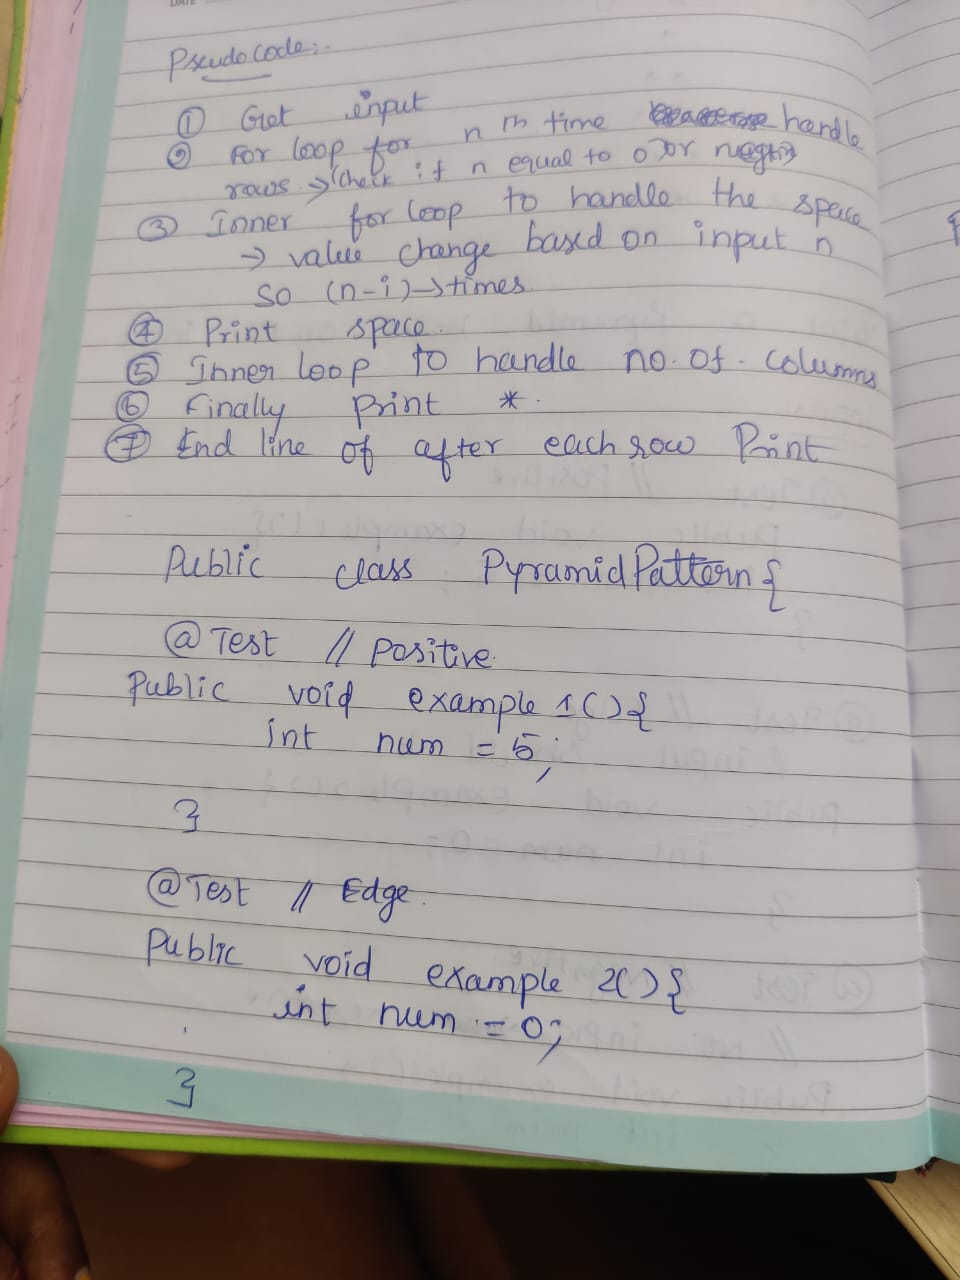 DATE
Pseudocode:-
① Get input
② For loop for n th time handle
rows → check if n equal to 0 or
③ Inner for loop to handle the space
→ value change based on input n
so (n-i) → times
④ Print space.
⑤ Inner loop to handle no. of. columns
⑥ Finally Print *.
⑦ End line of after each row Print
Public class PyramidPattern {
@Test // Positive.
Public void example 1() {
int num = 5;
}
@Test // Edge.
Public void example 2() {
int num = 0;
}